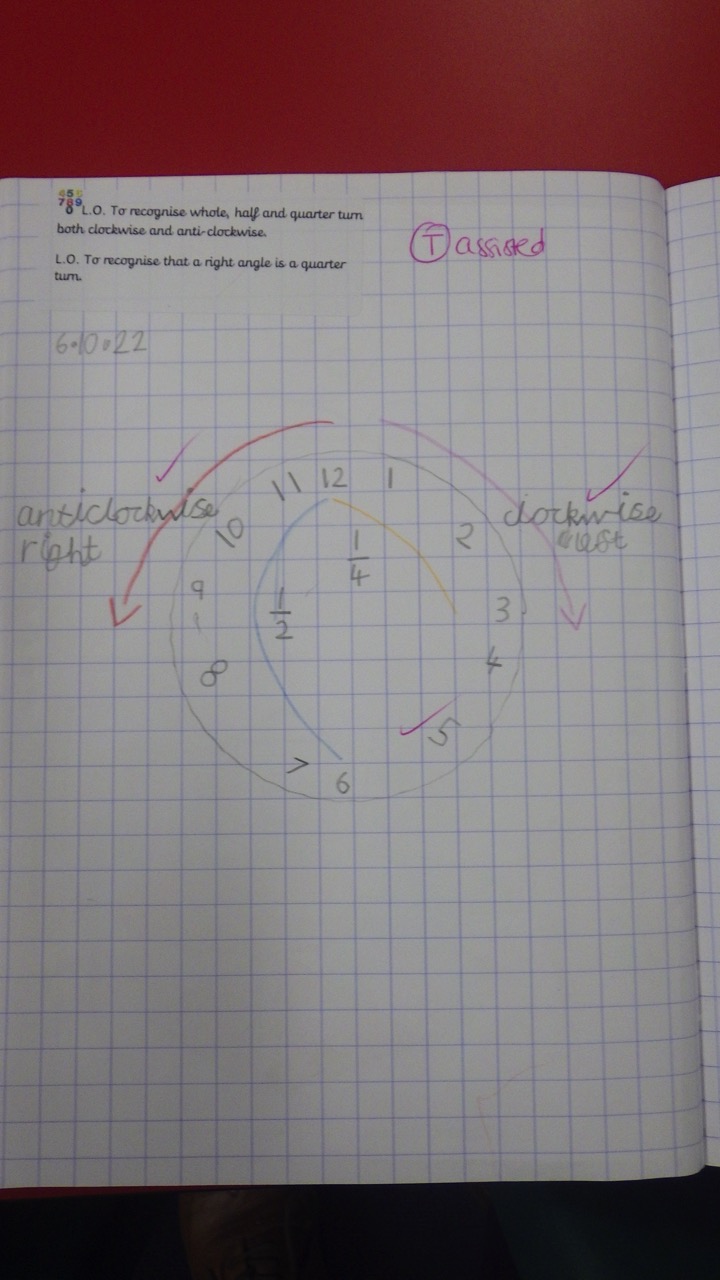 4 5 6
7 8 9
L.O. To recognise whole, half and quarter turn
both clockwise and anti-clockwise.
L.O. To recognise that a right angle is a quarter
turn.
T assisted
6.10.22
11 12 1
anticlockwise
right
clockwise
10
2
1/4
9
1/2
3
8
4
5
>
6